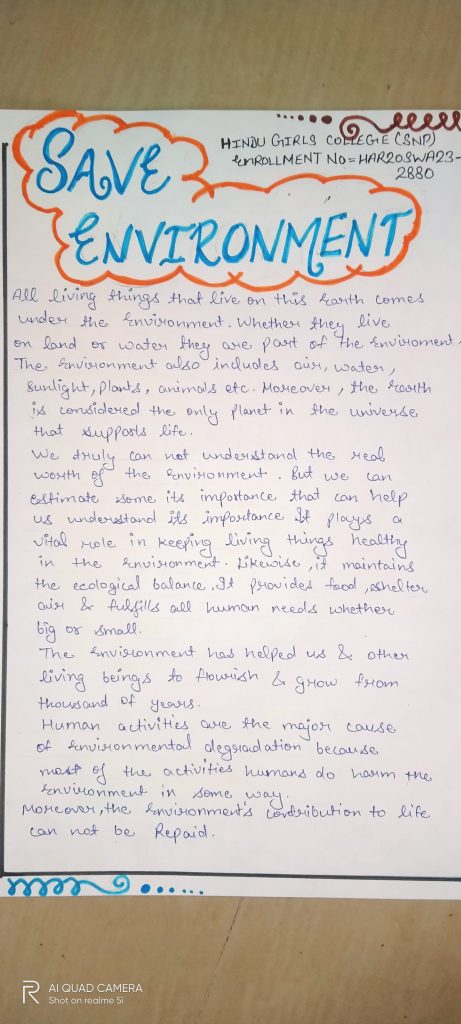 HINDU GIRLS COLLEGE (SNP)
ENROLLMENT NO = HAR20SWA23-
2880
SAVE
ENVIRONMENT
All living things that live on this Earth comes
under the Environment. Whether they live
on land or water they are part of the Enviroment.
The Environment also includes air, water,
sunlight, plants, animals etc. Moreover, the Earth
is considered the only planet in the universe
that supports life.
We truly can not understand the real
worth of the Environment. But we can
estimate some its importance that can help
us understand its importance It plays a
vital role in keeping living things healthy
in the Environment. Likewise, it maintains
the ecological balance. It provides food, shelter
air & fulfills all human needs whether
big or small.
The Environment has helped us & other
living beings to flourish & grow from
thousand of years.
Human activities are the major cause
of Environmental degradation because
most of the activities humans do harm the
Environment in some way.
Moreover, the Environment's contribution to life
can not be Repaid.
AI QUAD CAMERA
Shot on realme 5i